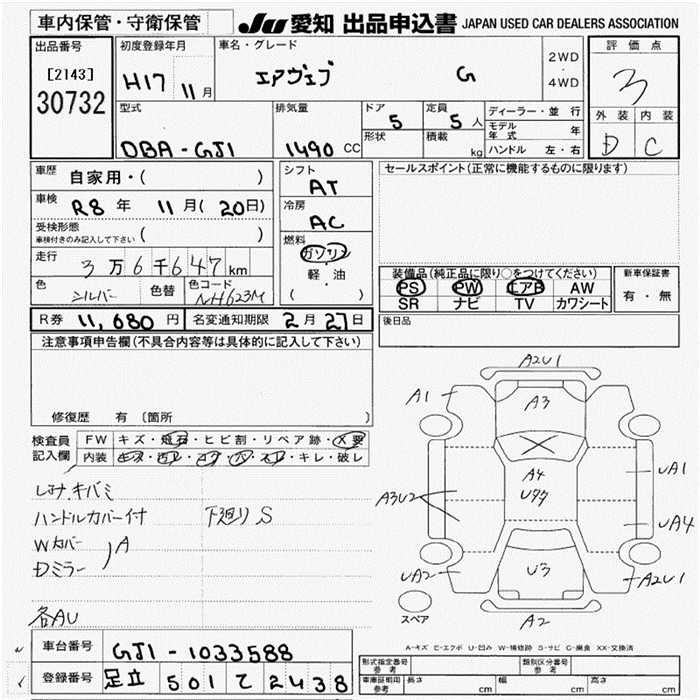 車内保管・守衛保管
JU 愛知 出品申込書 JAPAN USED CAR DEALERS ASSOCIATION
出品番号
[2143]
30732
初度登録年月
H17 11月
車名・グレード
エアヴェブ G
2WD
・
4WD
評価点
3
外装 内装
D C
型式
DBA-GJ1
排気量
1490 CC
ドア
5
定員
5人
形状
積載
kg
ディーラー・並行
モデル年式 年
ハンドル 左・右
車歴
自家用・( )
車検
R8年 11月(20日)
受検形態
車検付きのみ記入して下さい ( )
走行
3万6千647km
色
シルバー
色替
色コード
NH623M
シフト
AT
冷房
AC
燃料
ガソリン
軽・油
( )
セールスポイント(正常に機能するものに限ります)
装備品(純正品に限り○をつけてください)
PS PW エアB AW
SR ナビ TV カワシート
新車保証書
有・無
R券 11,680円 名変通知期限 2月27日
後日品
注意事項申告欄(不具合内容等は具体的に記入して下さい)
修復歴 有 〔箇所
検査員
記入欄
FW キズ・飛石・ヒビ割・リペア跡・X要
内装 キズ・汚レ・コゲ・穴・スレ・キレ・破レ
ハンドルカバー付
下廻りS
Wカバー
Dミラー
A
各AU
A2U1
A1
A3
A4
A3U2
UA1
UA4
UA2
U3
A2U1
スペア
A2
A-キズ E-エクボ U-凹み W-補修跡 S-サビ C-腐食 XX-交換済
車台番号
GJ1-1033588
登録番号
足立 501 て 2438
形式指定番号
参考
類別区分番号
参考
車庫証明用
参考
長さ cm
幅 cm
高さ cm